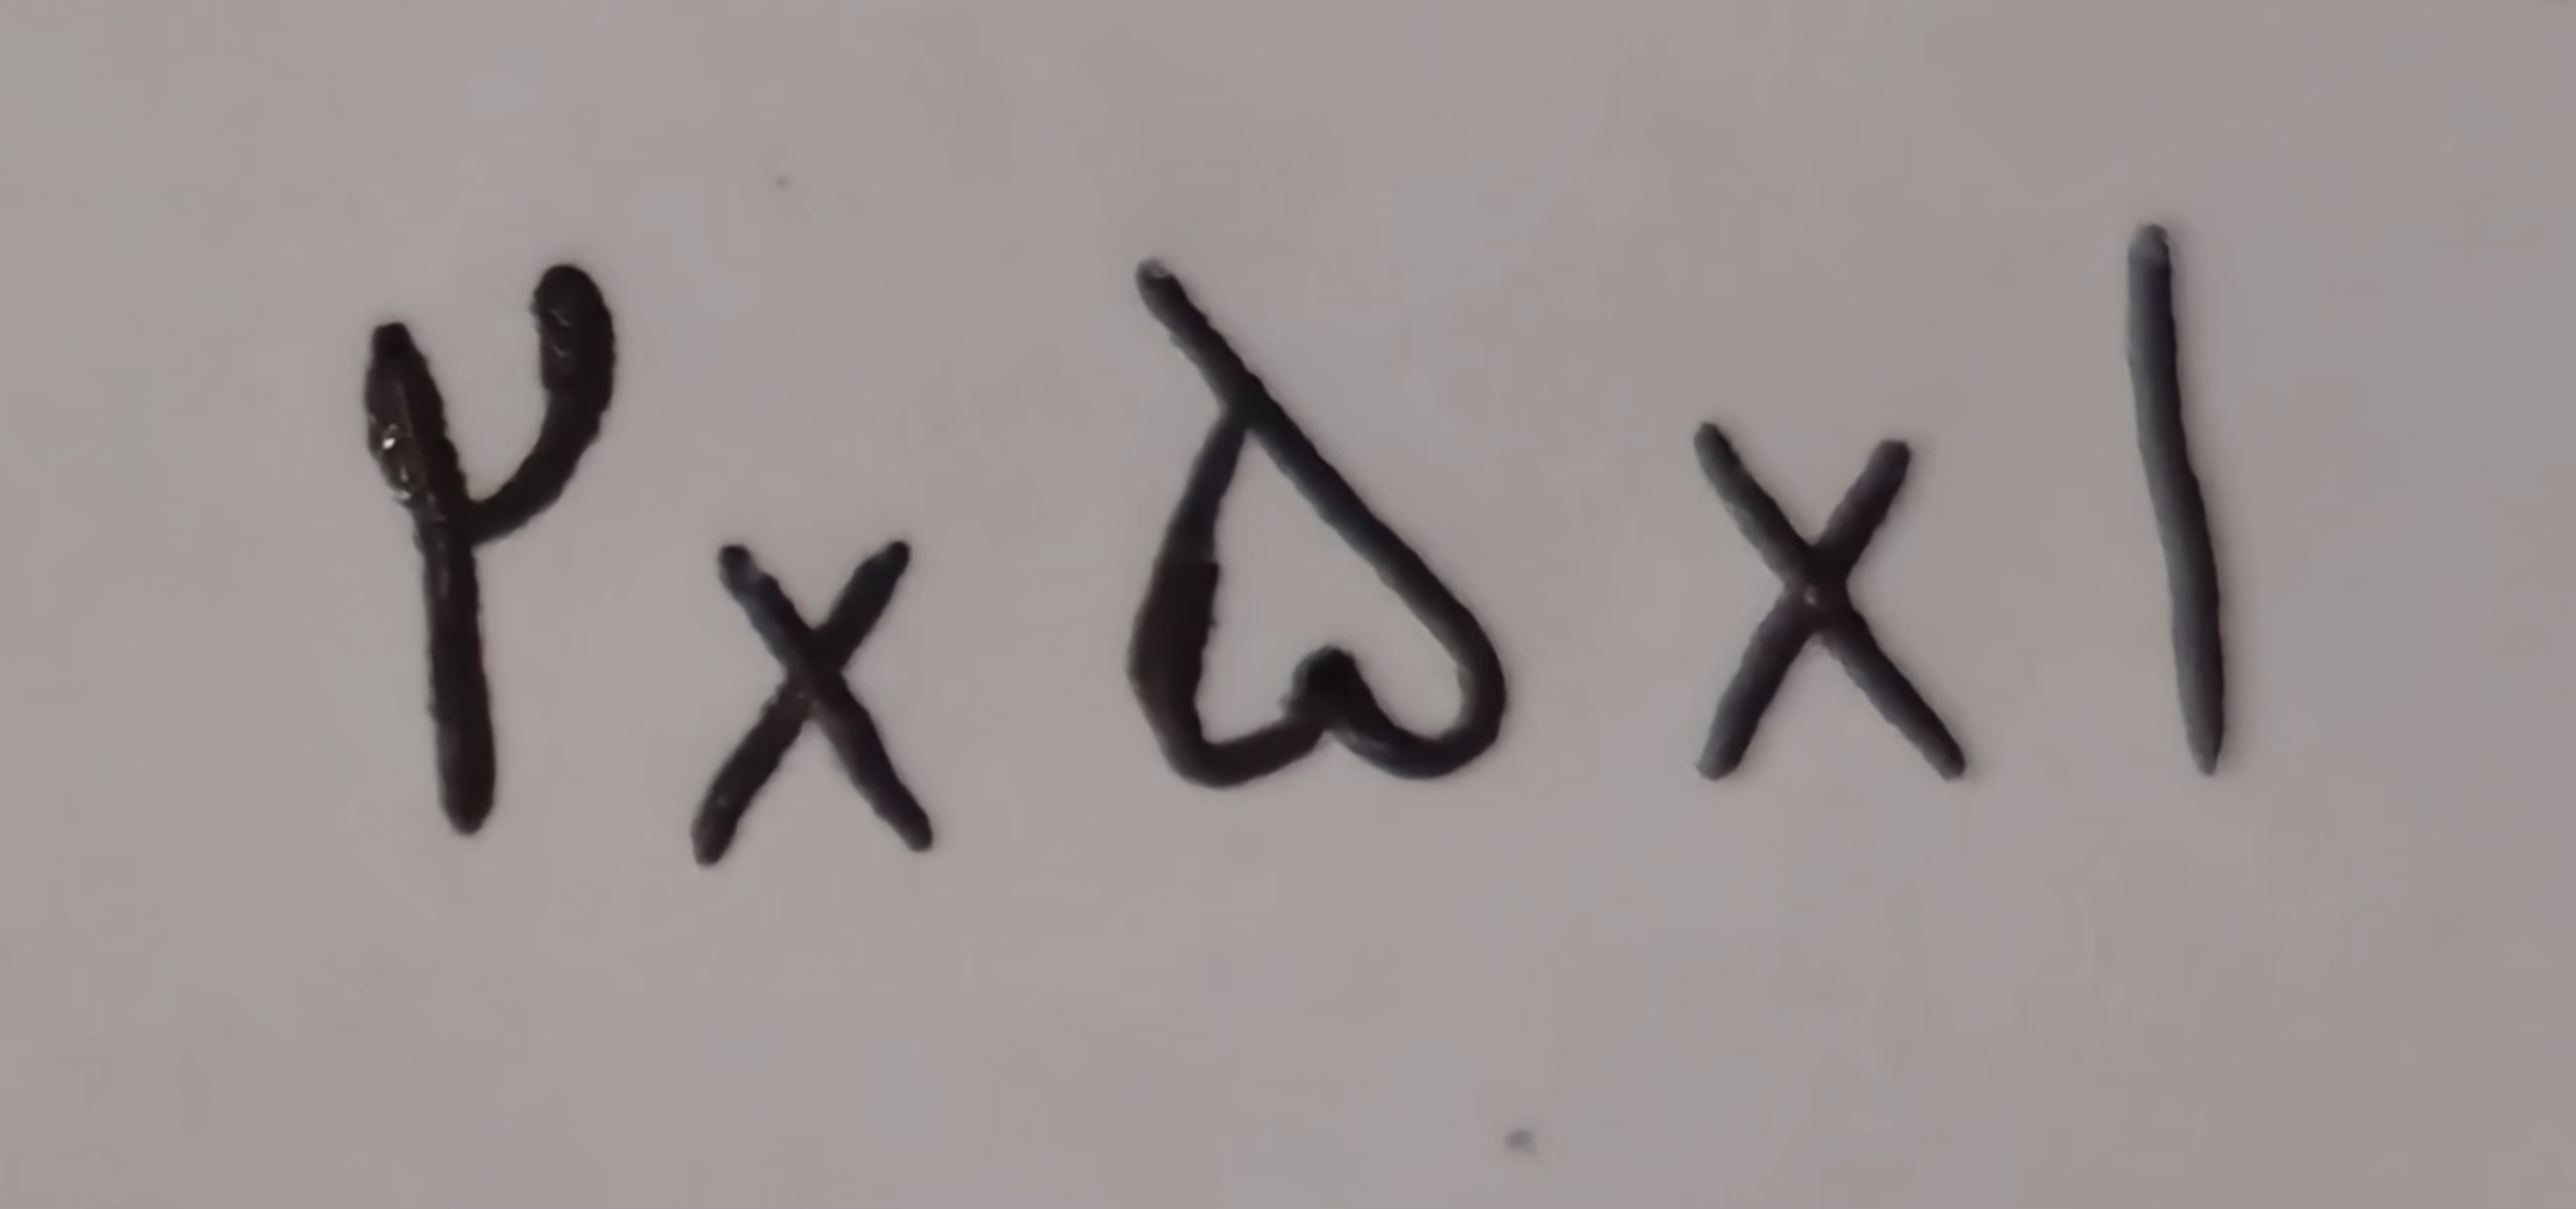 ۲×۵×۱